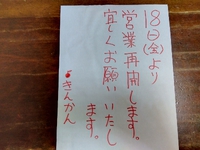 18日(金)より
営業再開します。
宜しくお願いいたし
ます。
きんかん